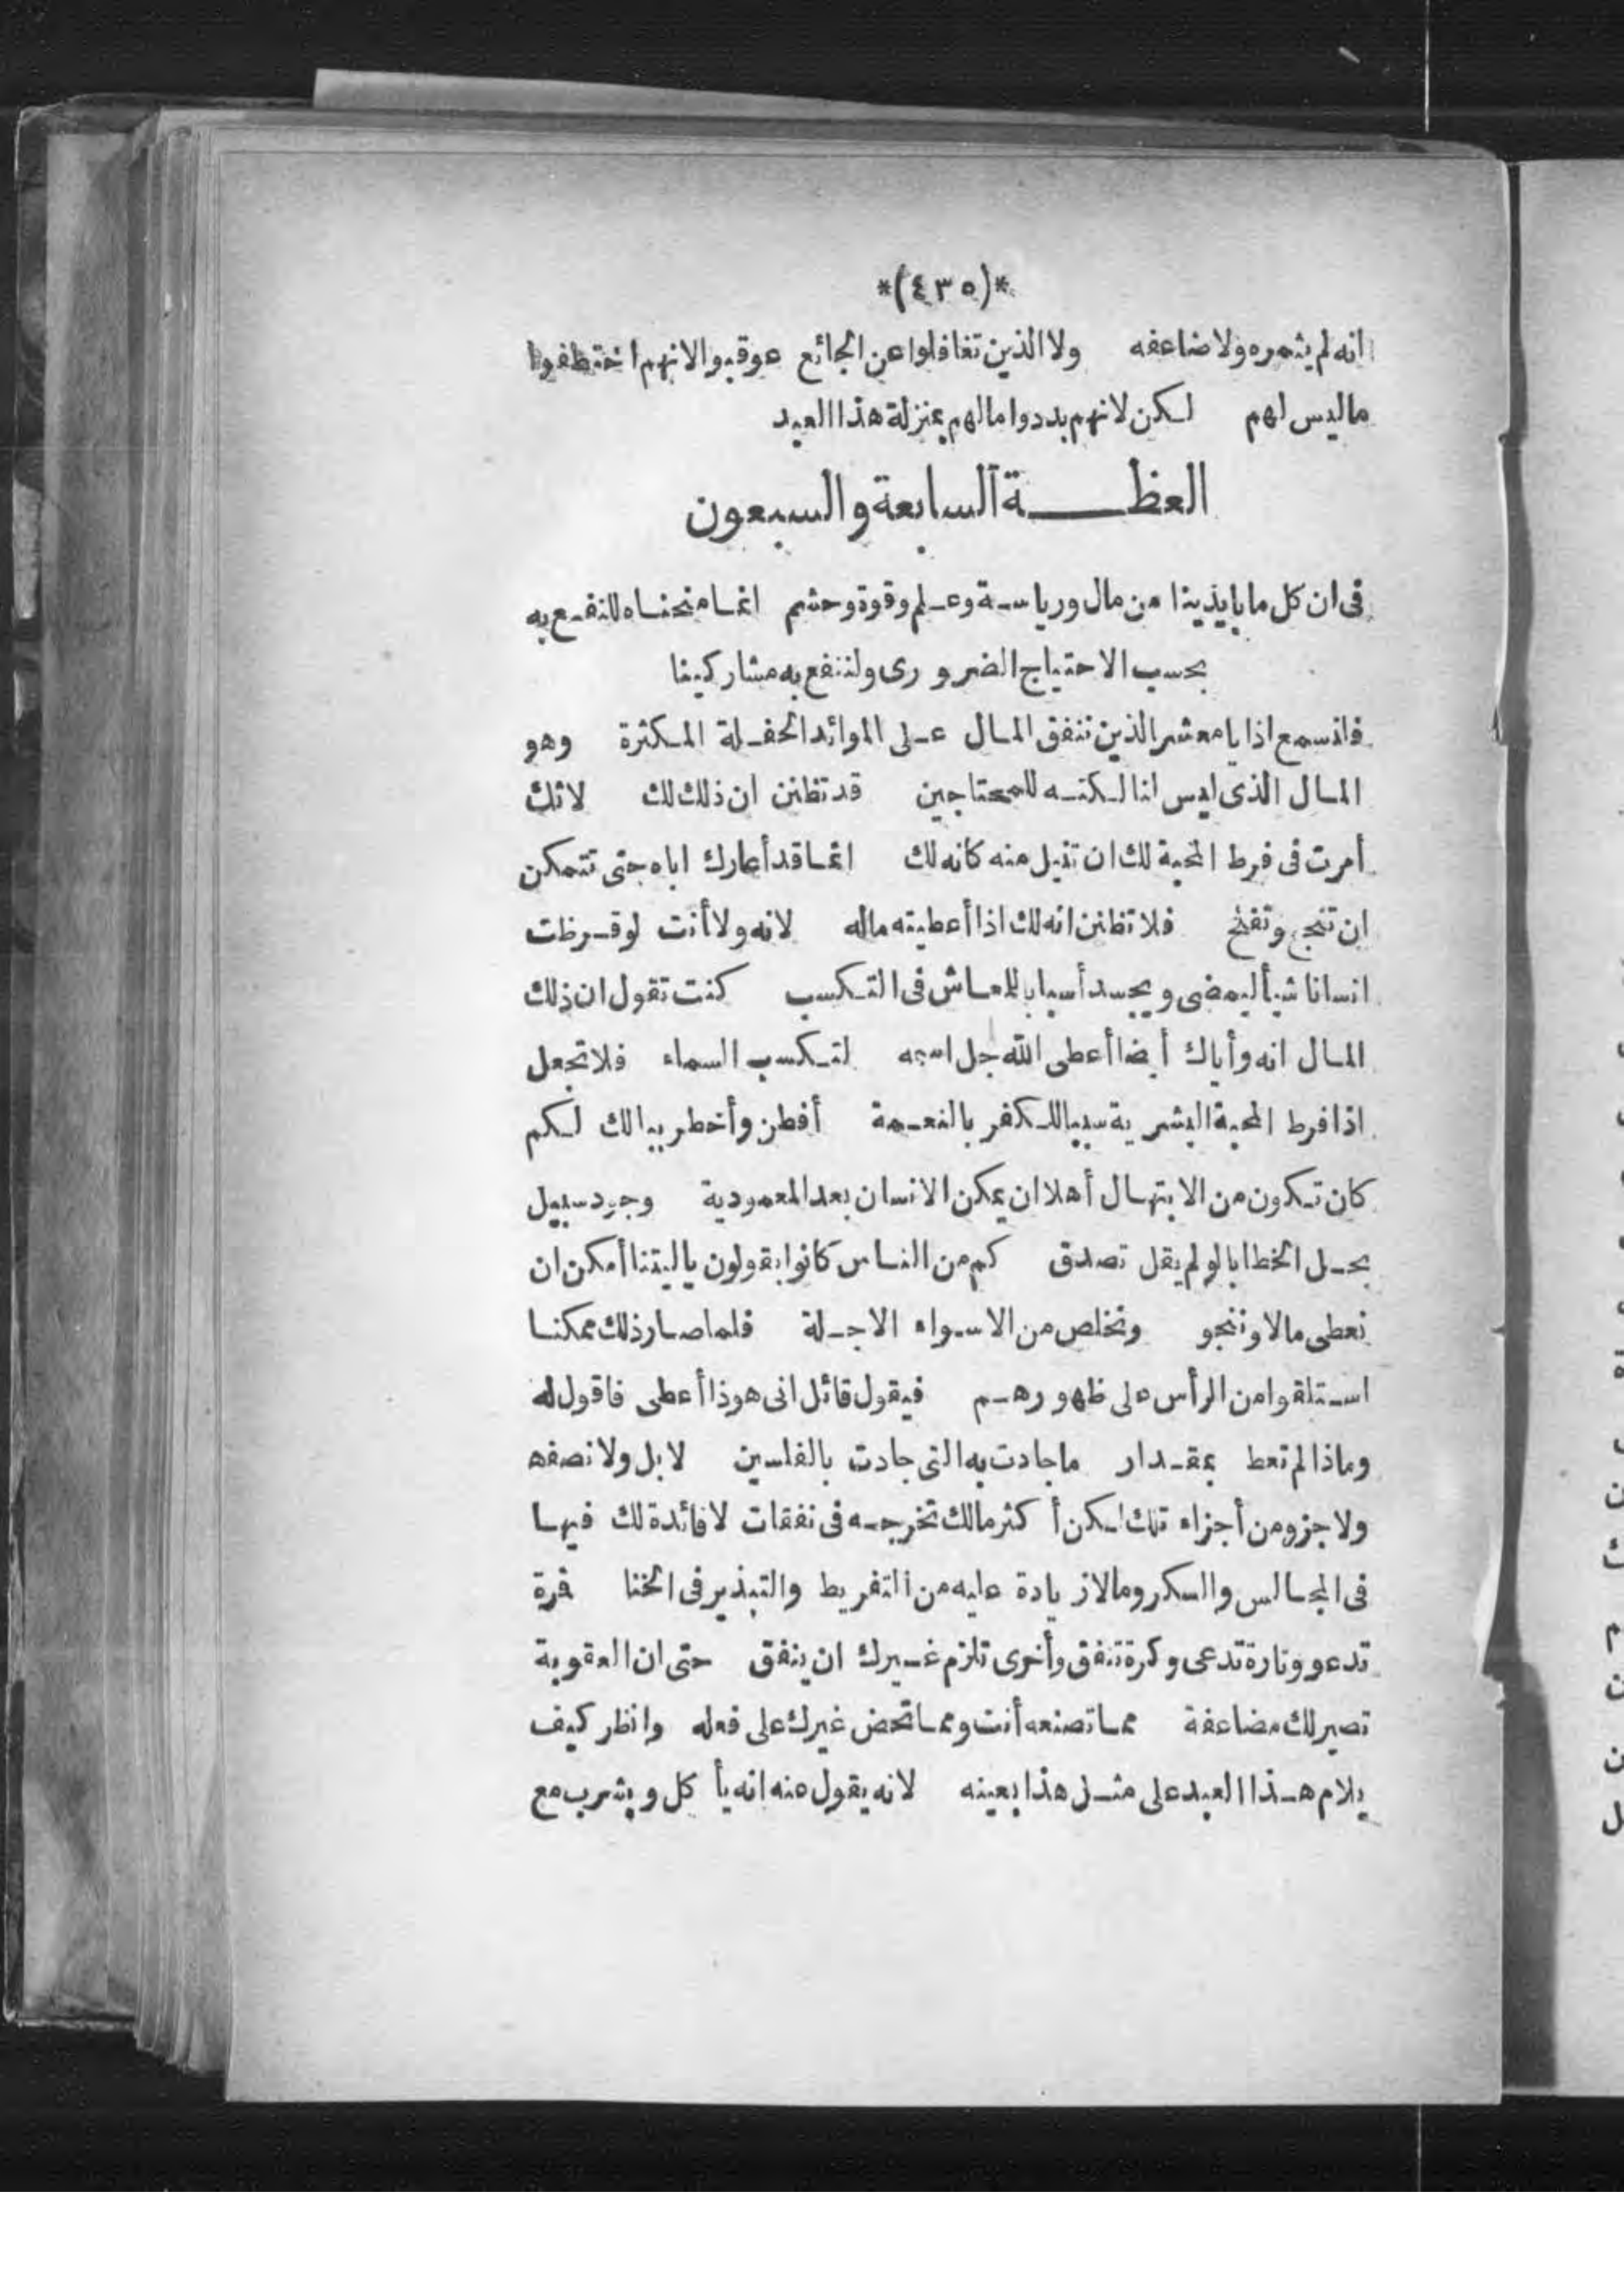 *(٤٣٥)*
انه لم يثمره ولا ضاعفه ولا الذين تغافلوا عن الجائع عوقبوا لانهم اختطفوا
ما ليس لهم لكن لانهم بددوا مالهم بمنزلة هذا العبد
العظة السابعة والسبعون
فى ان كل ما بايدينا من مال ورياسة وعلم وقوة وحشم انما منحناه للنفع به
بحسب الاحتياج الضرورى ولننفع به مشاركينا
فلنسمع اذا يا معشر الذين ننفق المال على الموائد الحفلة المكثرة وهو
المال الذى ليس لنا لكنه للمحتاجين قد تظنن ان ذلك لك لانك
أمرت فى فرط المحبة لك ان تنيل منه كانه لك انما قد أعارك اياه حتى تتمكن
ان تنجح وتفلح فلا تظنن انه لك اذا أعطيته ماله لانه ولا أنت لو قرظت
انسانا شيأ ليمضى ويجد أسبابا للمعاش فى التكسب كنت تقول ان ذلك
المال انه وأياك أيضا أعطى الله جل اسمه لتكسب السماء فلا تجعل
اذا فرط المحبة البشرية سببا للكفر بالنعمة أفطن وأخطر ببالك لكم
كان تكون من الابتهال أهلا ان يمكن الانسان بعد المعمودية وجود سبيل
بحل الخطايا لو لم يقل تصدق كم من الناس كانوا يقولون يا ليتنا أمكن ان
نعطى مالا وننجو ونخلص من الاسواء الاجلة فلما صار ذلك ممكنا
استلقوا من الرأس على ظهورهم فيقول قائل انى هوذا أعطى فاقول له
وماذا لم تعط بمقدار ما جادت به التى جادت بالفلسين لا بل ولا نصفه
ولا جزو من أجزاء تلك لكن أكثر مالك تخرجه فى نفقات لا فائدة لك فيها
فى المجالس والسكر وما لا زيادة عليه من التفريط والتبذير فى الخنا فمرة
تدعو وتارة تدعى وكرة تنفق وأخرى تلزم غيرك ان ينفق حتى ان العقوبة
تصير لك مضاعفة مما تصنعه أنت ومما تحض غيرك على فعله وانظر كيف
يلام هذا العبد على مثل هذا بعينه لانه يقول عنه انه يأكل ويشرب مع